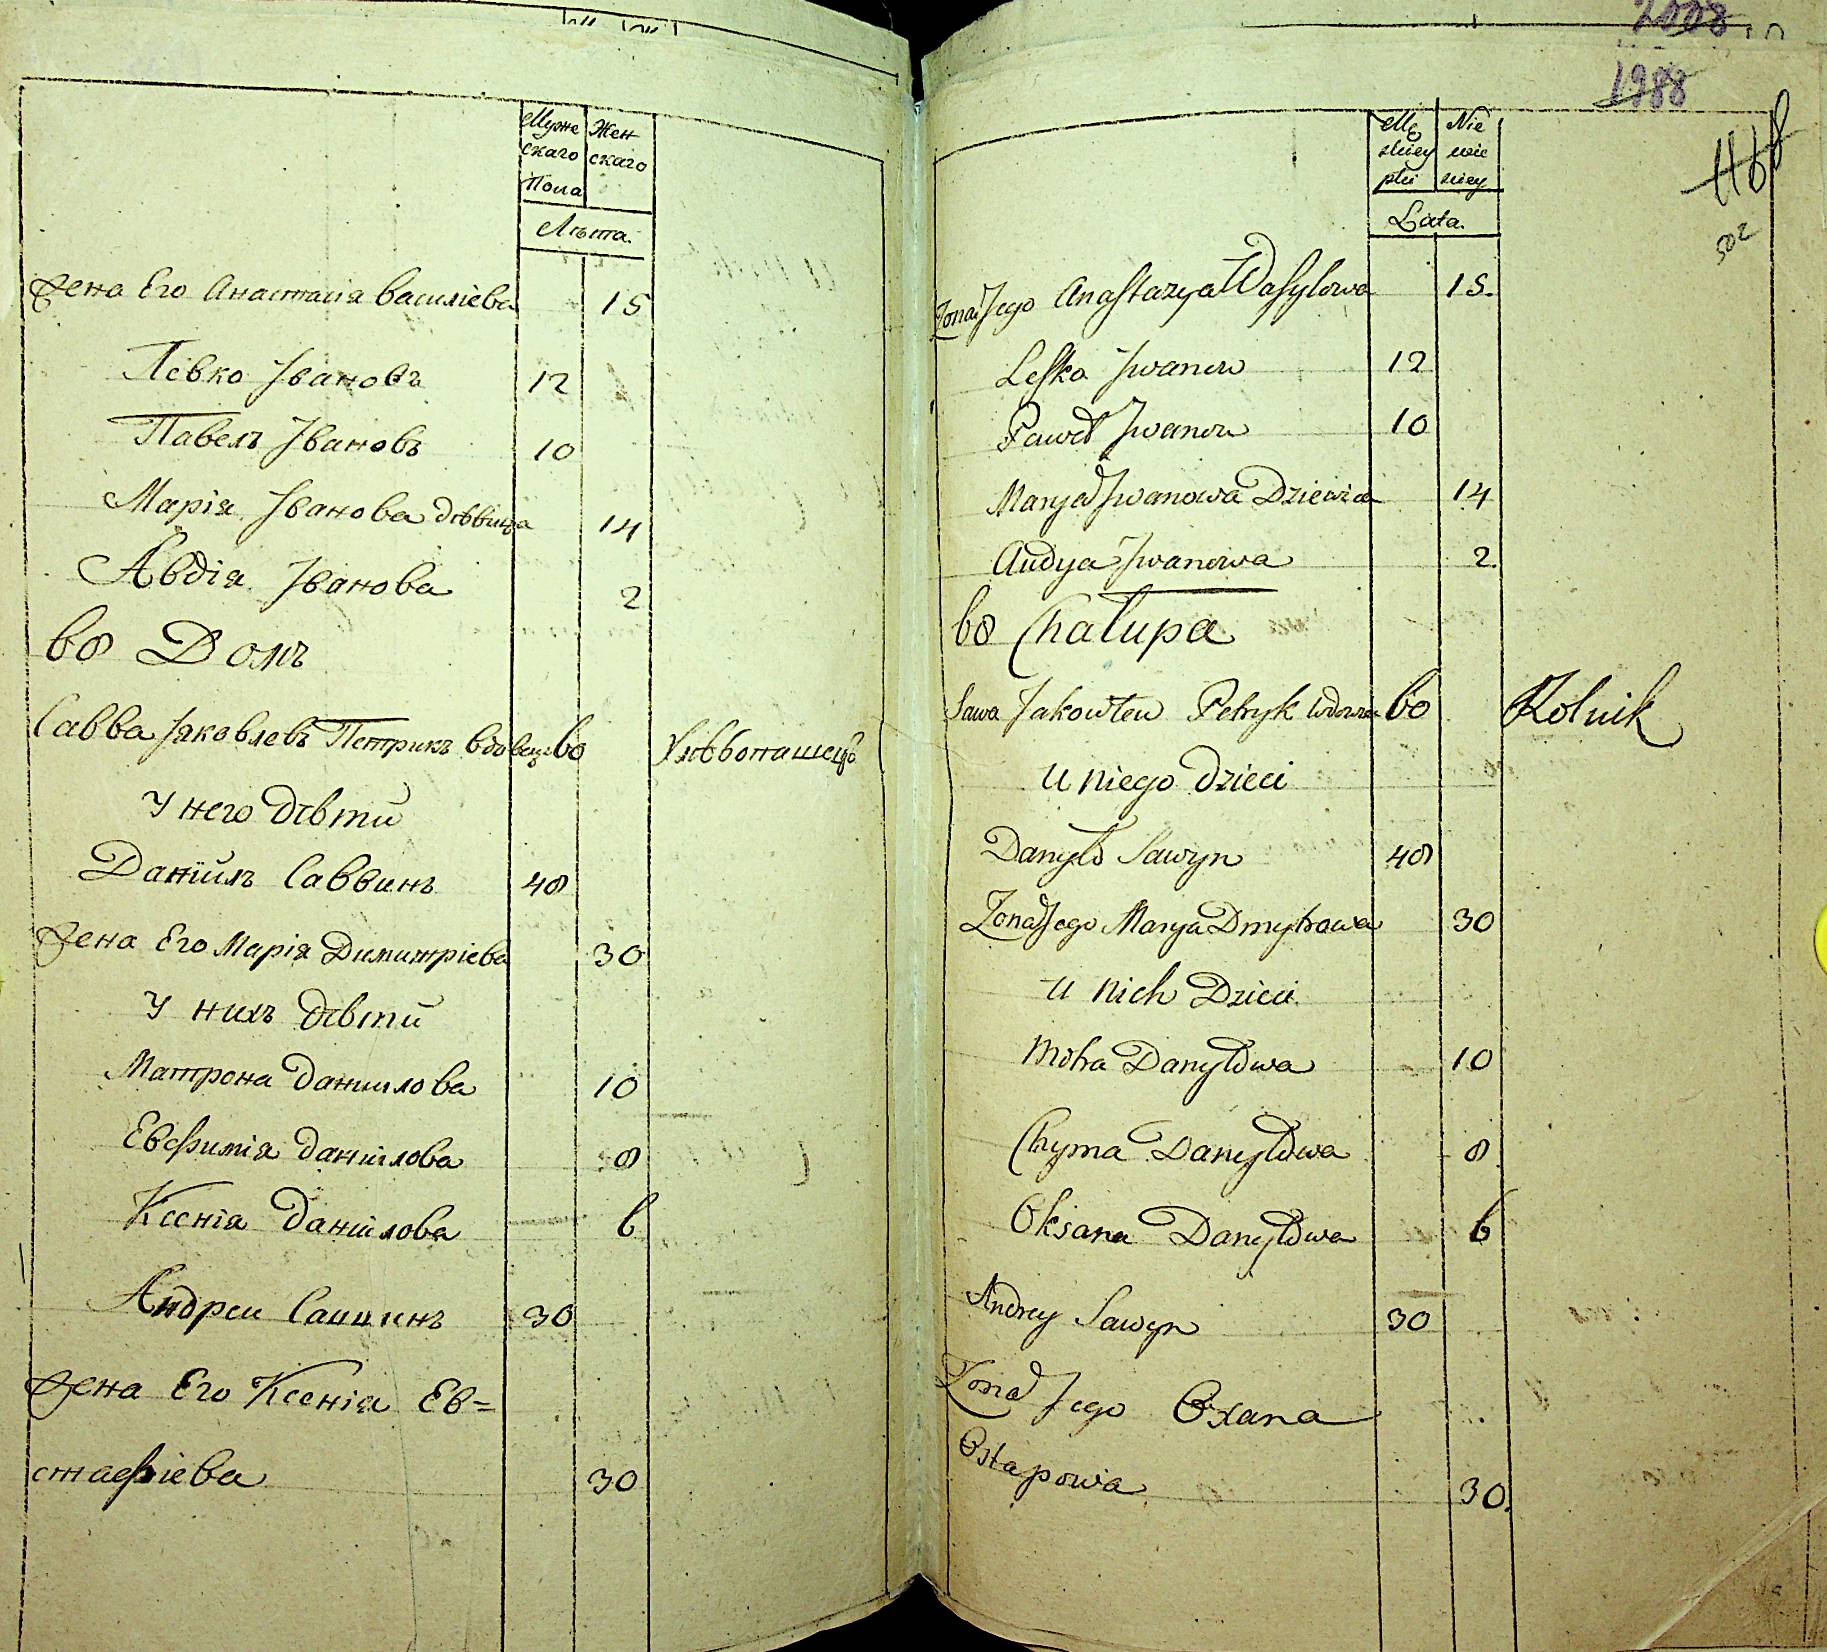 Муже Жен
скаго скаго
Пола
Лѣта.
Жена Его Анастасія Василіева 15
Левко Івановъ 12
Павелъ Івановъ 10
Марія Іванова дѣвица 14
Авдія Іванова 2
68 Домъ
Савва Яковлевъ Петрикъ вдовецъ 60 Хлѣбопашецъ
У него дѣти
Даніилъ Саввинъ 48
Жена Его Марія Димитріева 30
У нихъ дѣти
Матрона Данилова 10
Евфимія Даніилова 8
Ксенія Даніилова 6
Андрей Саввинъ 30
Жена Его Ксенія Ев=
стафіева 30
2008
1988
502
Mę Nie
zkiey wie
płci sciey
Lata.
Żona Jego Anastazya Wasylowa 15.
Lesko Jwanow 12
Paweł Jwanow 10
Marya Jwanowa Dziewica 14
Audya Jwanowa 2.
68 Chałupa
Sawa Jakowlew Petryk wdowiec 60 Rolnik
U niego dzieci
Danyło Sawyn 48
Żona Jego Marya Dmytrowa 30
U nich Dzieci
Motra Danyłowa 10
Chyma Danyłowa 8
Oksana Danyłowa 6
Andrey Sawyn 30
Żona Jego Oxana
Ostapowa 30.